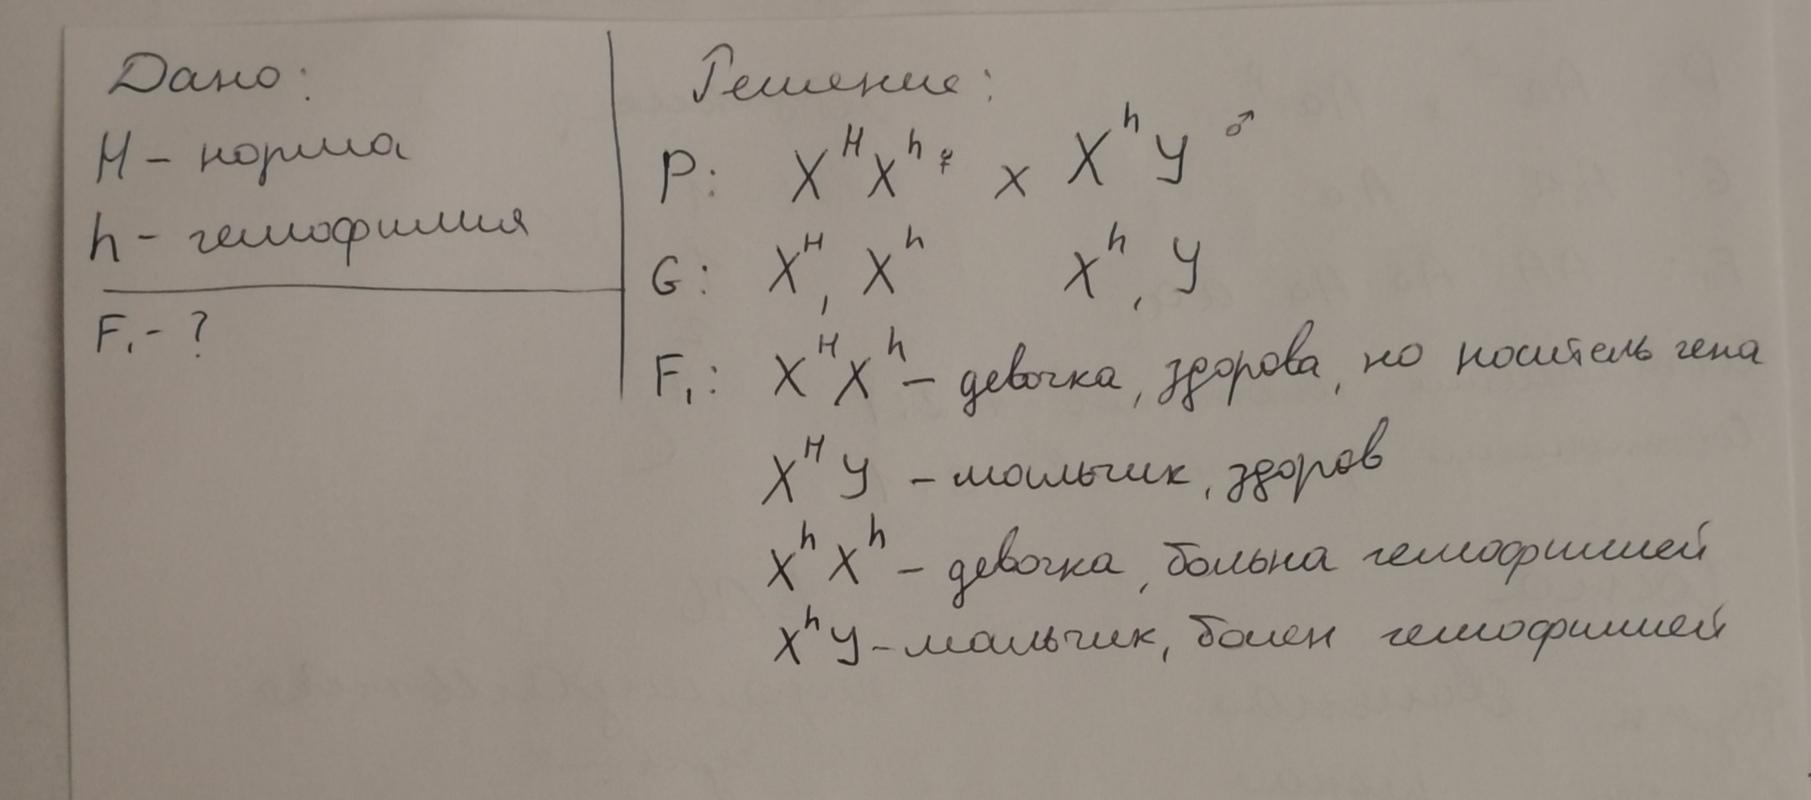 Дано:
H - норма
h - гемофилия
F₁ - ?
Решение:
P: X^H X^h ♀ x X^h Y ♂
G: X^H, X^h X^h, Y
F₁: X^H X^h - девочка, здорова, но носитель гена
X^H Y - мальчик, здоров
X^h X^h - девочка, больна гемофилией
X^h Y - мальчик, болен гемофилией